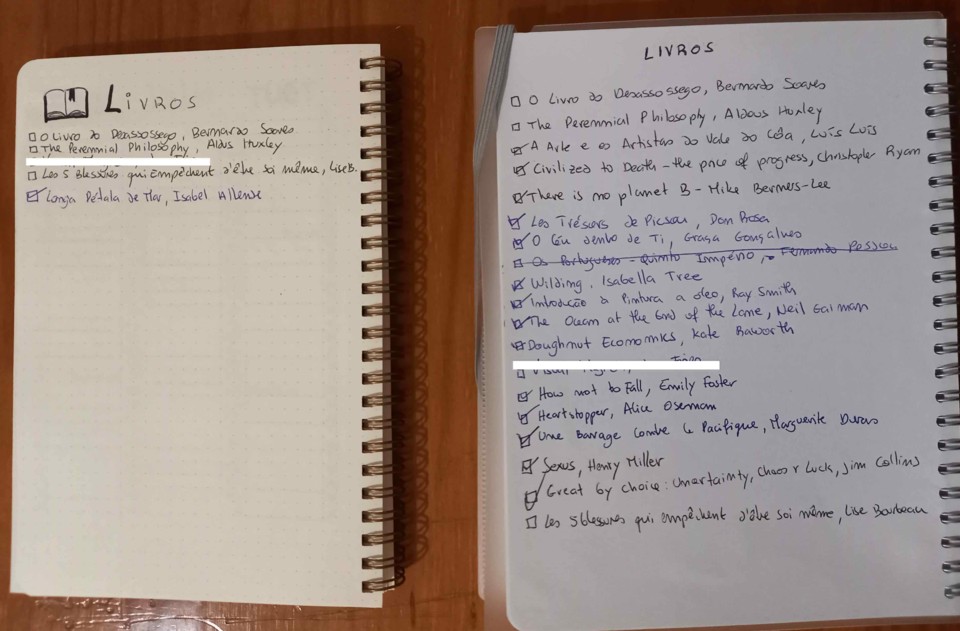 LIVROS
O Livro do Desassossego, Bernardo Soares
The Perennial Philosophy, Aldus Huxley
Les 5 blessures qui empêchent d'être soi même, Lise B.
Longa Pétala de Mar, Isabel Allende
LIVROS
O Livro do Desassossego, Bernardo Soares
The Perennial Philosophy, Aldous Huxley
A Arte e os Artistas do Vale do Côa, Luís Luís
Civilized to Death - the price of progress, Christopher Ryan
There is no planet B - Mike Berners-Lee
Les Trésors de Picsou, Don Rosa
O Céu dentro de Ti, Graça Gonçalves
Os Portugueses - Quinto Império, Fernando Pessoa
Wilding, Isabella Tree
Introdução à Pintura a óleo, Ray Smith
The Ocean at the End of the Lane, Neil Gaiman
Doughnut Economics, Kate Raworth
How not to Fall, Emily Foster
Heartstopper, Alice Oseman
Une Barrage Contre le Pacifique, Marguerite Duras
Sexus, Henry Miller
Great by choice: Uncertainty, Chaos r Luck, Jim Collins
Les 5 blessures qui empêchent d'être soi même, Lise Bourbeau